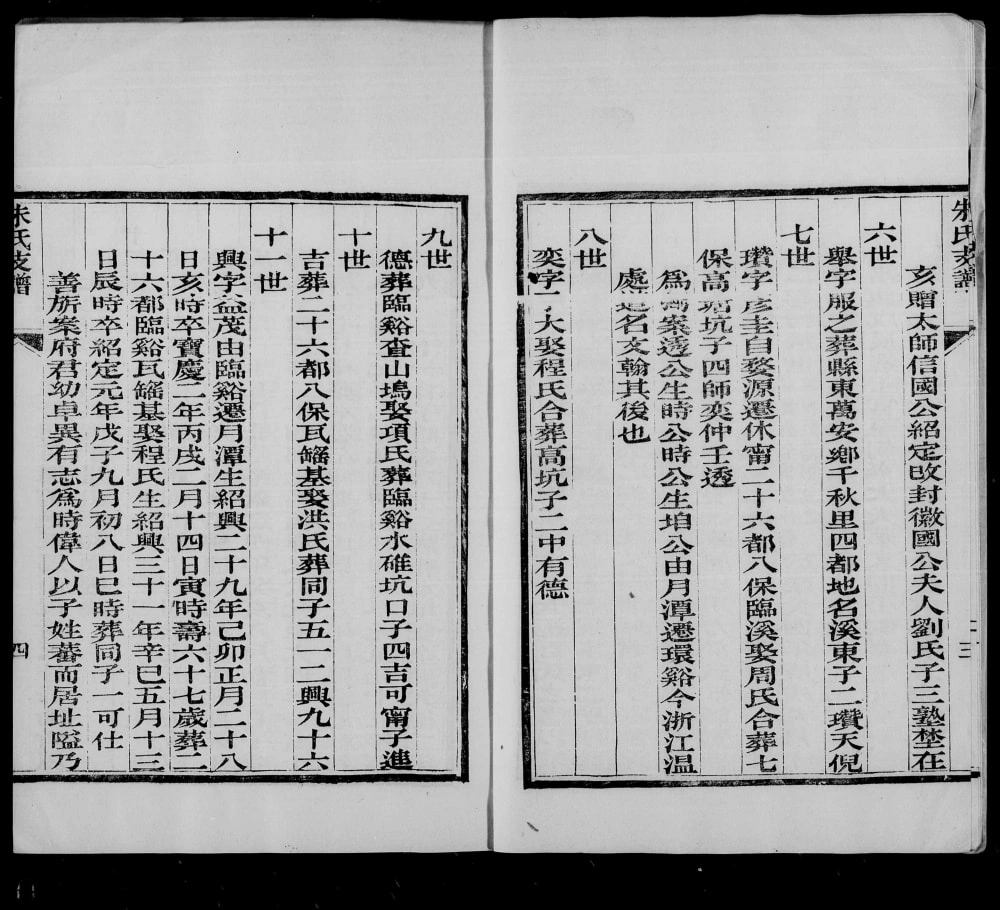 朱氏支譜
三
亥贈太師信國公紹定改封徽國公夫人劉氏子三塾埜在
六世
舉字服之葬縣東萬安鄉千秋里四都地名溪東子二瓚天倪
七世
瓚字彥圭自婺源遷休甯二十六都八保臨溪娶周氏合葬七
保高塘坑子四師奕仲壬透
為 案透公生時公時公生垍公由月潭遷環谿今浙江温
處 名文翰其後也
八世
奕字 大娶程氏合葬高坑子二中有德
九世
德葬臨谿查山塢娶項氏葬臨谿水碓坑口子四吉可甯子進
十世
吉葬二十六都八保瓦䃀基娶洪氏葬同子五一二興九十六
十一世
興字益茂由臨谿遷月潭生紹興二十九年己卯正月二十八
日亥時卒寶慶二年丙戌二月十四日寅時壽六十七歲葬二
十六都臨谿瓦䃀基娶程氏生紹興三十一年辛巳五月十三
日辰時卒紹定元年戊子九月初八日巳時葬同子一可仕
善旂案府君幼卓異有志為時偉人以子姓蕃而居址隘乃
朱氏支譜
四